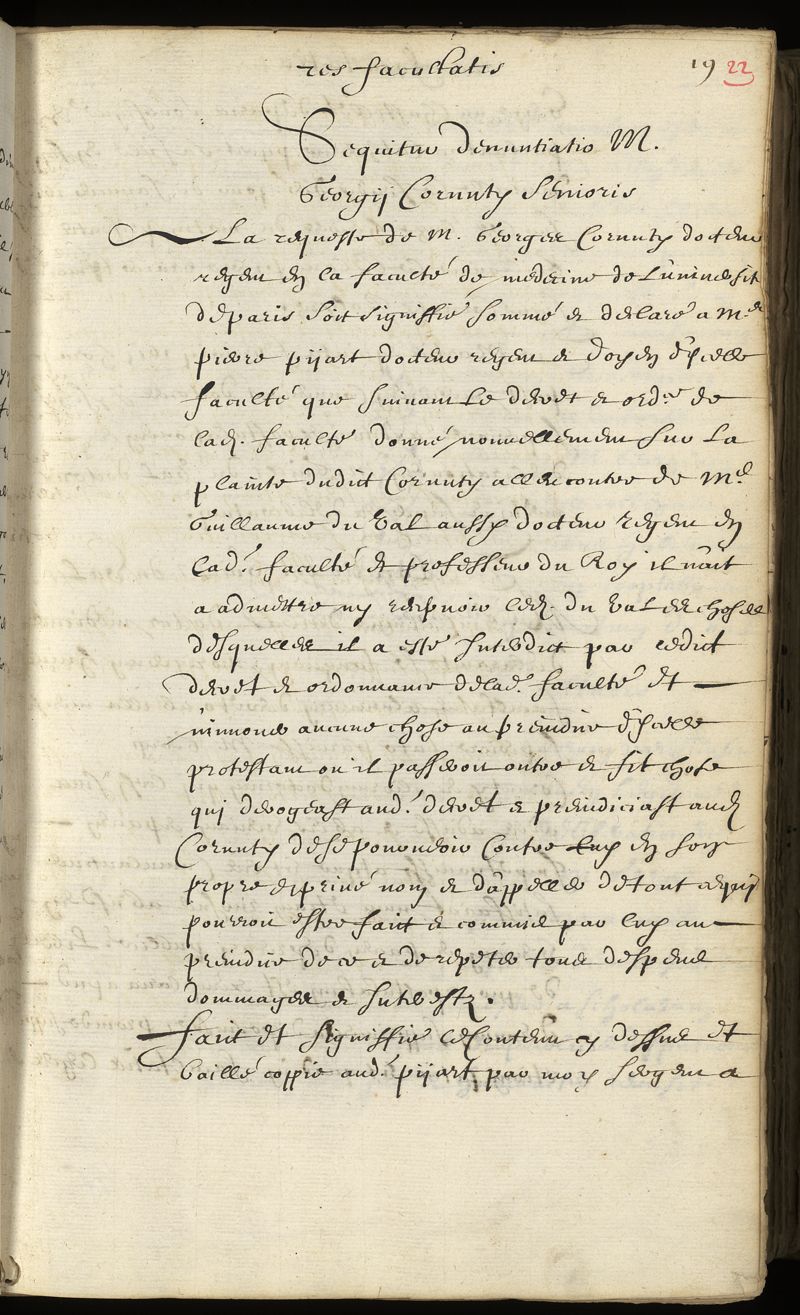 res facultatis 19 22
Sequitur denuntiatio M.
Georgij Cornuty senioris
La requeste de M. George Cornuty docteur
regent en la faculté de medecine de Luniversit
de paris soit signiffié sommé et declaré a Me
pierre pijart docteur regent et doyen d'ycelle
faculté que suivant Le decret et ordce de
lad. faculté donné nouvellement sur La
plainte dudict Cornuty allencontre de Me
Guillaume du Val aussy docteur regent en
lad. faculté et professeur du Roy il n'ait
a admettre ny led. du Val es choses
desquelles il a esté Interdict par ledict
decret et ordonnance de lad. faculté et
n'innover aucune chose au preiudice d'ycelle
protestant ou il passeroit outre et fit chose
qui derogeast aud. decret et preiudiciast aud
Cornuty de se pourveoir Contre Luy en son
propre et privé nom et d'appeller de tout ce qui
pourroit estre fait et commis par luy au
preiudice de ce et de repeter tous despens
dommages et Interestz.
fait et signiffié le Contenu cy dessus et
baillé coppie aud. pijart par moy sergent a